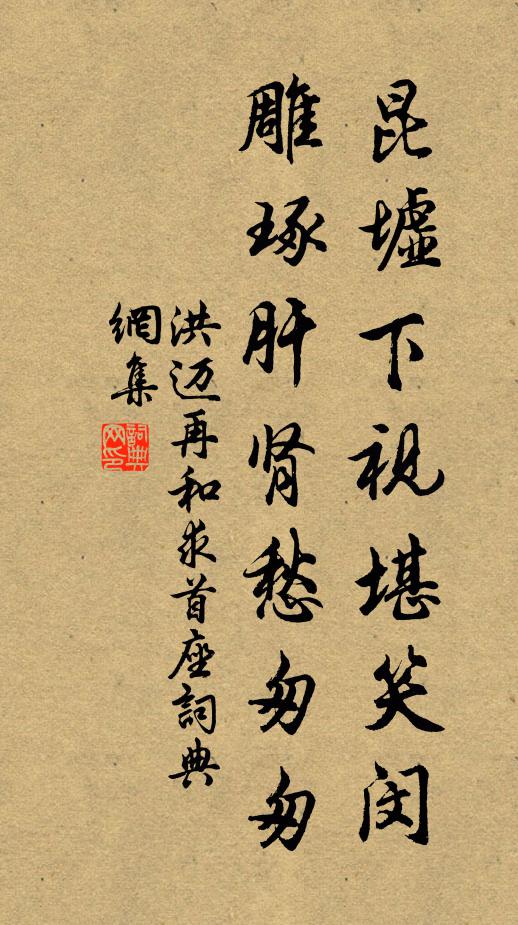 昆墟下視堪笑闵
雕琢肝肾愁匆匆
洪迈再和求首座詞典
網集
詞典網印